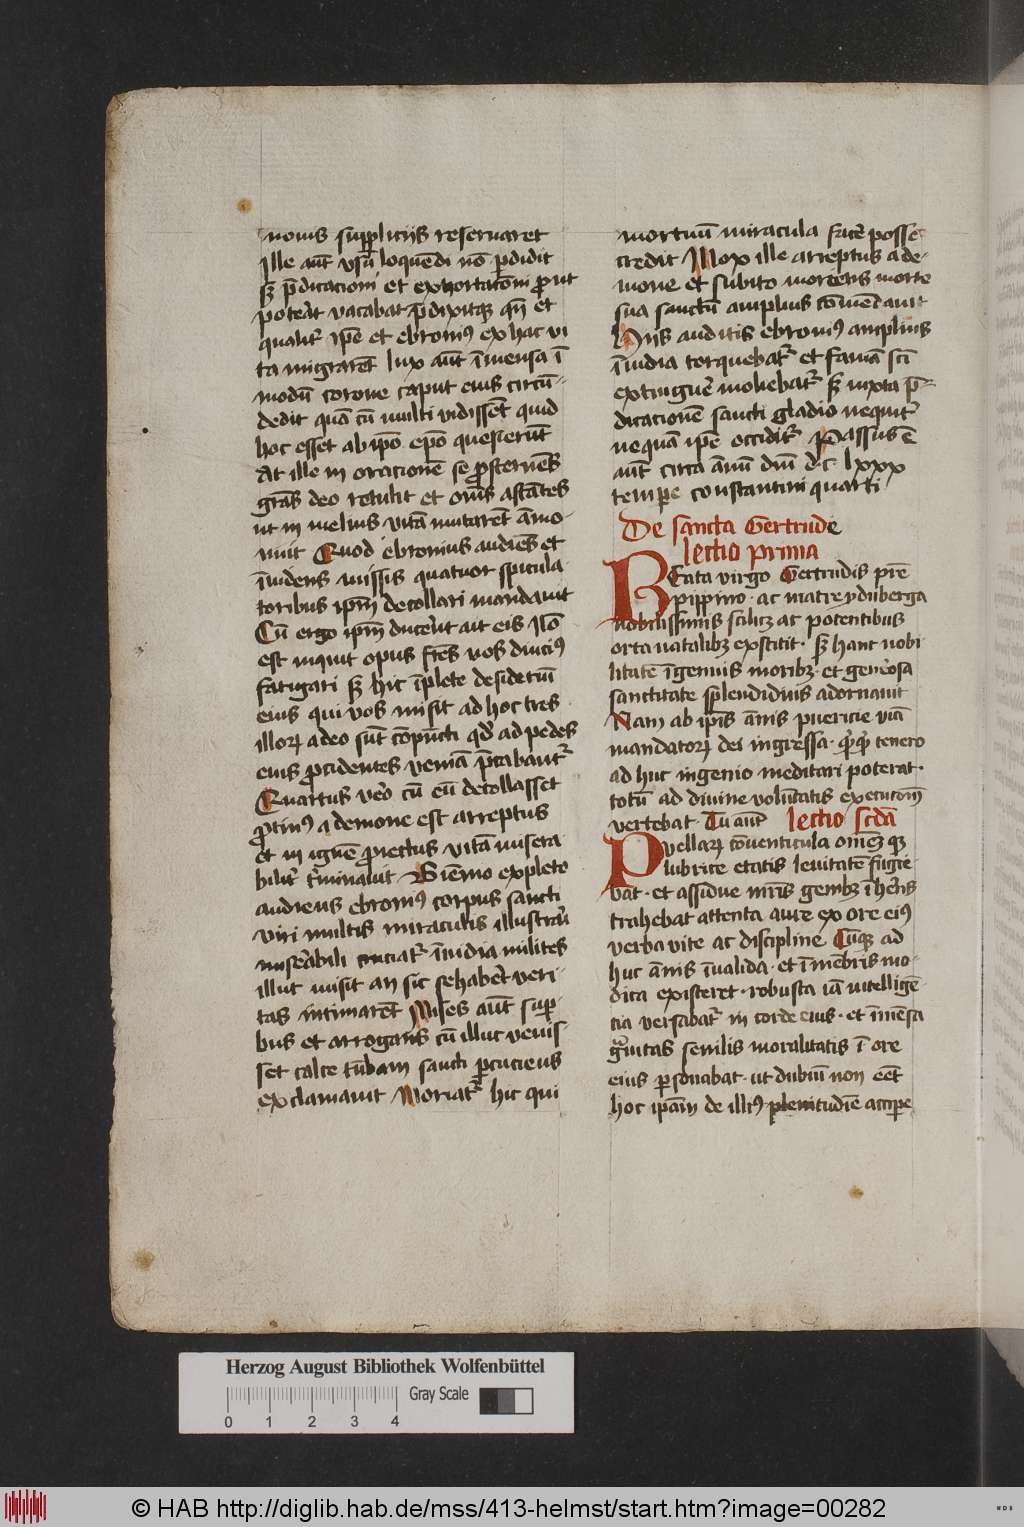 nouis suppliciis reseruaret
Ille aūt vsū loquēdi nō ꝑdidit
sꝫ p̄dicacioni et exhortatōni prout
poterͥt vacabat p̄dixitqꝫ qn̄ et
qualit͛ ip̄e et ebroniꝰ ex hac vi
ta migraret̄ lux aūt īmensa ī
modū corone caput eius circū-
dedit quā cū multi vidissēt quid
hoc esset ab ip̄o ep̄o quesierūt
At ille in oracionē se prosternēs
grās deo retulit et om̄s astātes
ut in melius vitā mutarēt āmo-
nuit Quod ebronius audiēs et
īuidens missis quatuor spicula
toribus ip̄m decollari mandauit
Cū ergo ip̄m ducerēt ait eis Nō
est inquit opus frēs vos diuciꝰ
fatigari sꝫ hic īplete desideriū
eius qui vos misit ad hoc tres
illoꝝ adeo sūt cōpūcti qđ ad pedes
eius procidentes veniā p̄cabant͛
Quartus vero cū eū decollasset
protinꝰ a demone est arreptus
et in ignē proiectus vitā misera
bilit͛ t͛minauit Biēnio expleto
audiens ebroniꝰ corpus sancti
viri multis miraculis illustrari
miserabili cruciat͛ īuidia milites
illuc misit an sic se haberet veri-
tas intimaret̄ Miles aūt suꝑ-
bus et arrogans cū illuc venis
set calce tūbam sancti ꝑcuciens
exclamauit Moriat͛ hic qui
mortuū miracula facere posse
credit Mox ille arreptus a de-
mone et subito moriens morte
sua sanctū amplius cōmēdauit
Hiis auditis ebroniꝰ amplius
īuidia torquebat͛ et famā sc̄i
extinguere moliebat͛ sꝫ iuxta p̄-
dicacionē sancti gladio nequit͛
nequā ip̄e occidit͛ Passus ē
aūt circa annū dn̄i dc lxxx
tempe constantini quarti
De sancta Gertrude
lectio prima
BEata virgo Gertrudis pr̄e
pippino · ac matre yduberga
nobilissimis scilicꝫ ac potentibus
orta natalibꝫ exstitit · sꝫ hanc nobi
litatē īgenuis moribꝫ · et generosa
sanctitate splendidius adornauit
Nam ab ip̄is ānis puericie viā
mandatoꝝ dei ingressa · qͥqͥd tenero
ad huc ingenio meditari poterat ·
totū ad diuine volūtatis execucōnē
vertebat · Tu aut̄ lectio sc̄da
Puellaꝝ cōuenticula omēqꝫ
lubrice etatis leuitatē fugie
bat · et assidue mr̄is genibꝫ īherēs
trahebat attenta aure ex ore eiꝰ
verba vite ac discipline Cūqꝫ ad
huc ānis īualida · et ī mēbris mo-
dica existeret · robusta iā intelligē-
cia versabat͛ in corde eius · et īmēsa
grauitas senilis moralitatis ī ore
eius ꝑsonabat · ut dubiū non eēt
hoc ip̄am de illiꝰ plenitudīe accipe
Herzog August Bibliothek Wolfenbüttel
Gray Scale
0 1 2 3 4
© HAB http://diglib.hab.de/mss/413-helmst/start.htm?image=00282